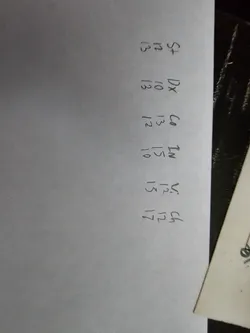 St Dx Co In Wi Ch
12 10 13 15 12 12
13 13 12 10 15 17